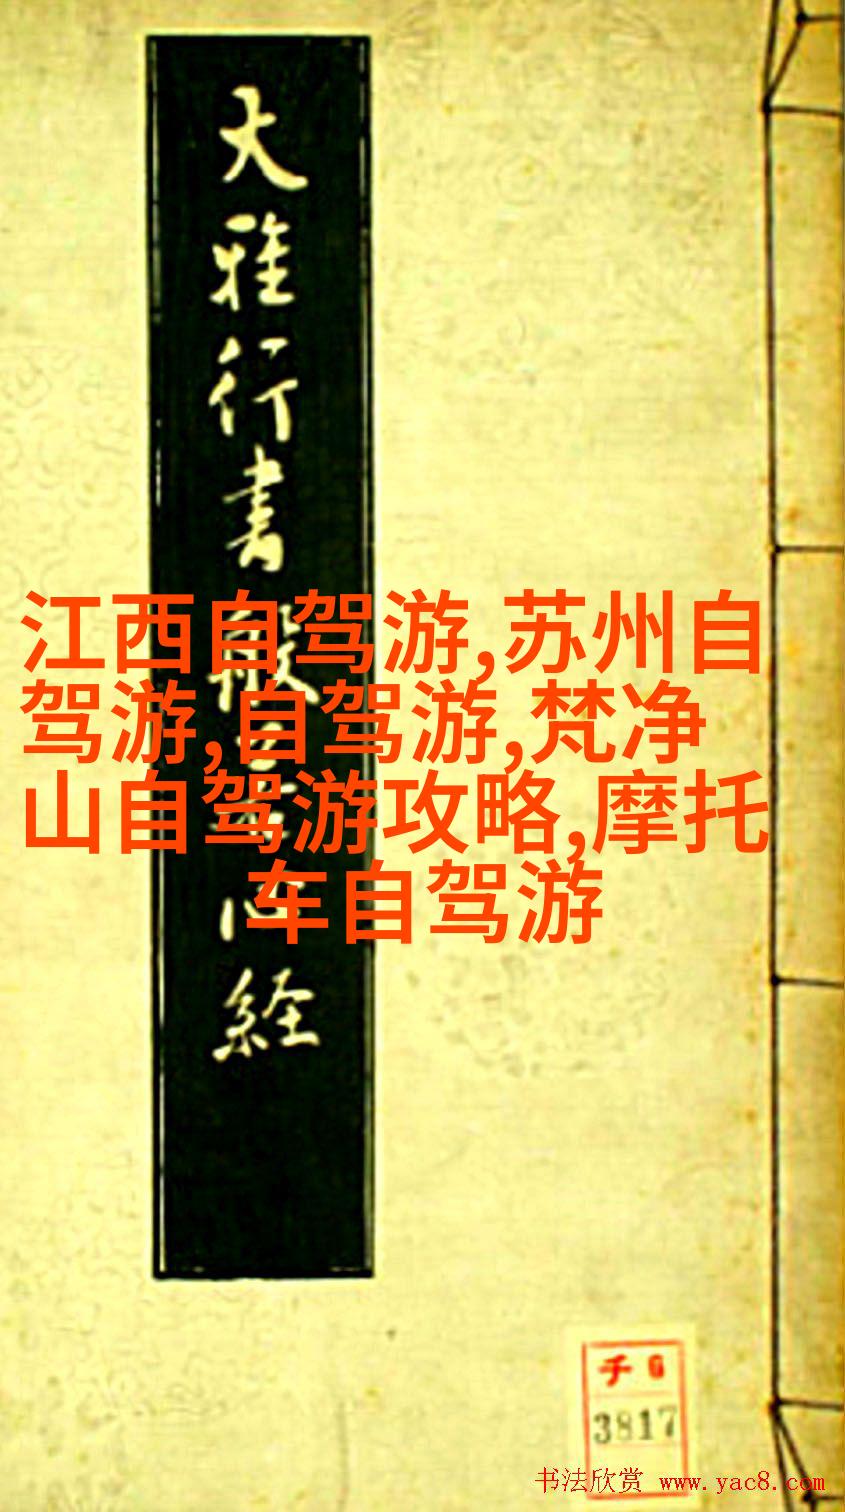 大雅行書般若心経
江西自驾游,苏州自
驾游,自驾游,梵净
山自驾游攻略,摩托
车自驾游
チ 6
3817
书法欣赏 www.yac8.com